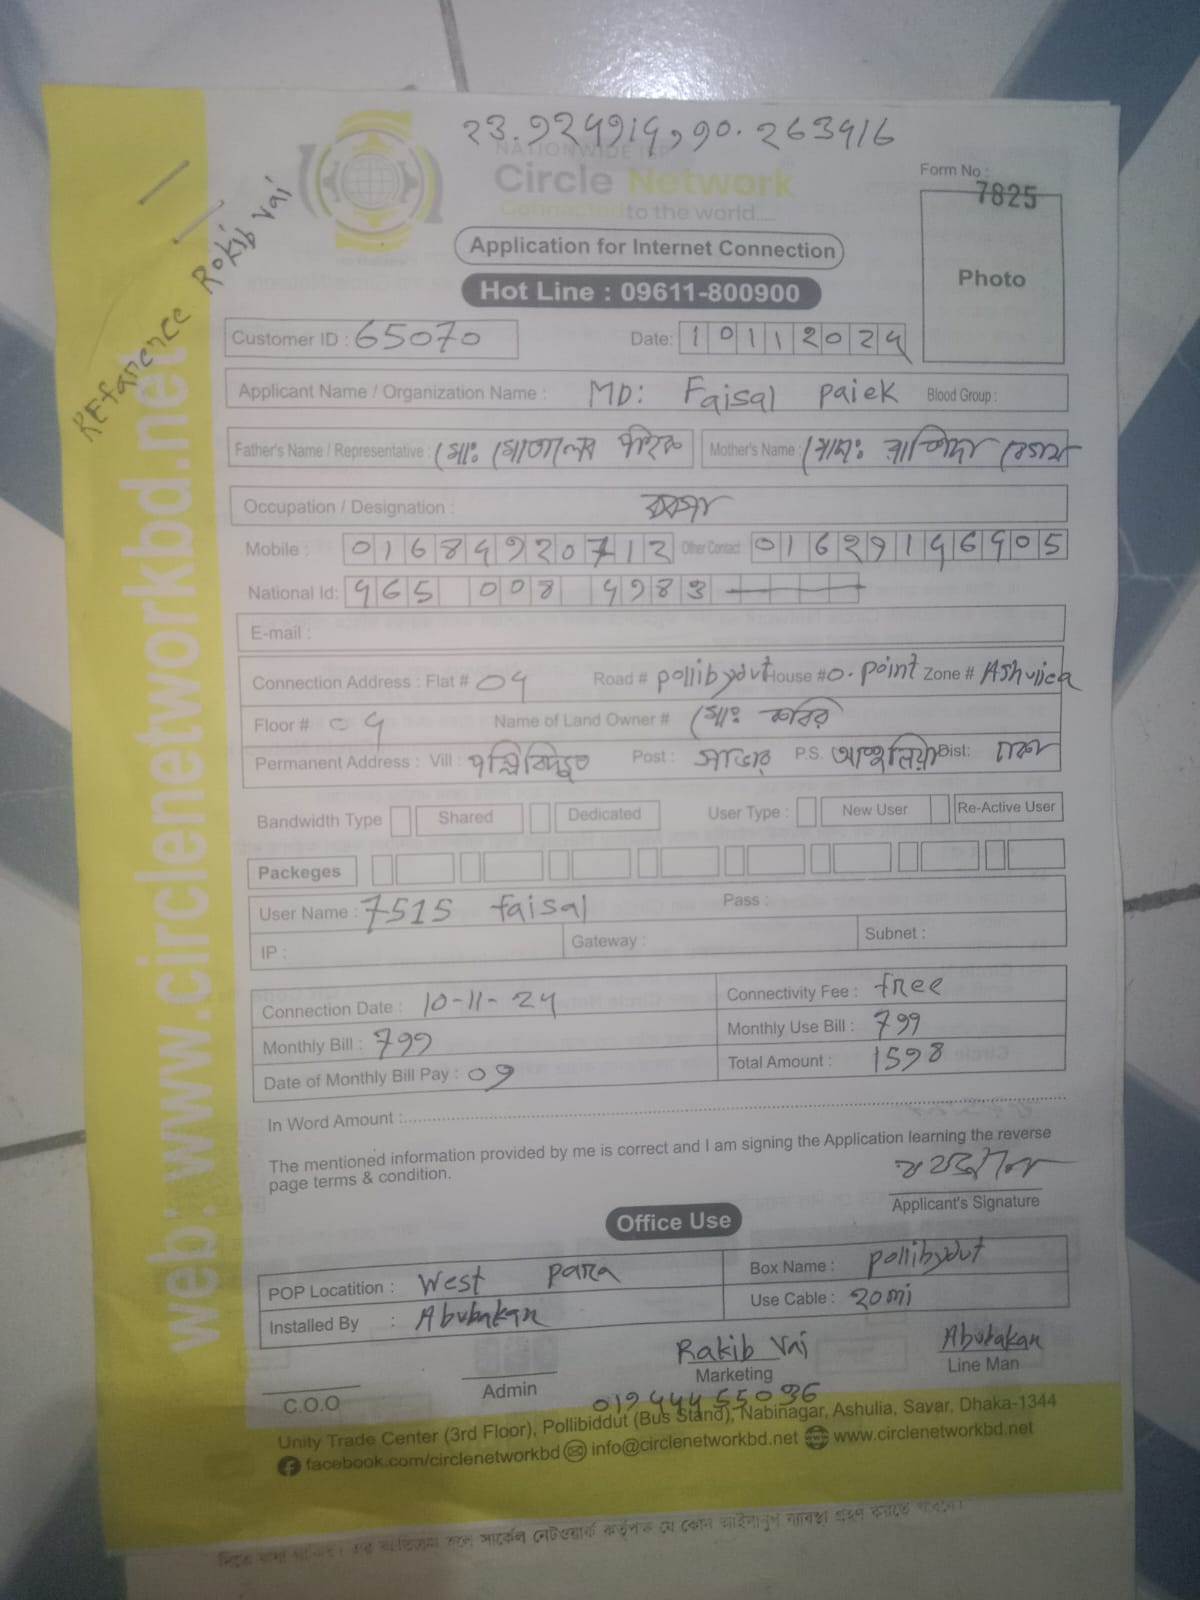 23.924914,90.263416
NATIONWIDE ISP
Circle Network
Connected to the world....
Form No :
7825
Refarence Rokib Vai
Application for Internet Connection
Photo
Hot Line : 09611-800900
Customer ID : 65070 Date: 10112024
Applicant Name / Organization Name : MD: Faisal paiek Blood Group :
Father's Name / Representative : মোঃ মোতালেব পাইক Mother's Name : মোছাঃ রাশিদা বেগম
Occupation / Designation :
Mobile : 01684920712 Other Contact 01629146905
National Id: 965 008 4983
E-mail :
Connection Address : Flat # 04 Road # pollibydut House # 0. point Zone # Ashulica
Floor # 04 Name of Land Owner # মোঃ কবির
Permanent Address : Vill : পল্লিবিদ্যুত Post : সাভার P.S. আশুলিয়া Dist: ঢাকা
Bandwidth Type Shared Dedicated User Type : New User Re-Active User
Packeges
User Name : 7515 faisal Pass :
IP : Gateway : Subnet :
Connection Date : 10-11-24 Connectivity Fee : free
Monthly Bill : 799 Monthly Use Bill : 799
Date of Monthly Bill Pay : 09 Total Amount : 1598
In Word Amount :
The mentioned information provided by me is correct and I am signing the Application learning the reverse
page terms & condition.
Applicant's Signature
Office Use
POP Locatition : West para Box Name : pollibydut
Installed By : Abubakan Use Cable : 20mi
Rakib Vai Abubakan
C.O.O Admin Marketing Line Man
01944455036
Unity Trade Center (3rd Floor), Pollibiddut (Bus Stand), Nabinagar, Ashulia, Savar, Dhaka-1344
facebook.com/circlenetworkbd info@circlenetworkbd.net www.circlenetworkbd.net
web: www.circlenetworkbd.net